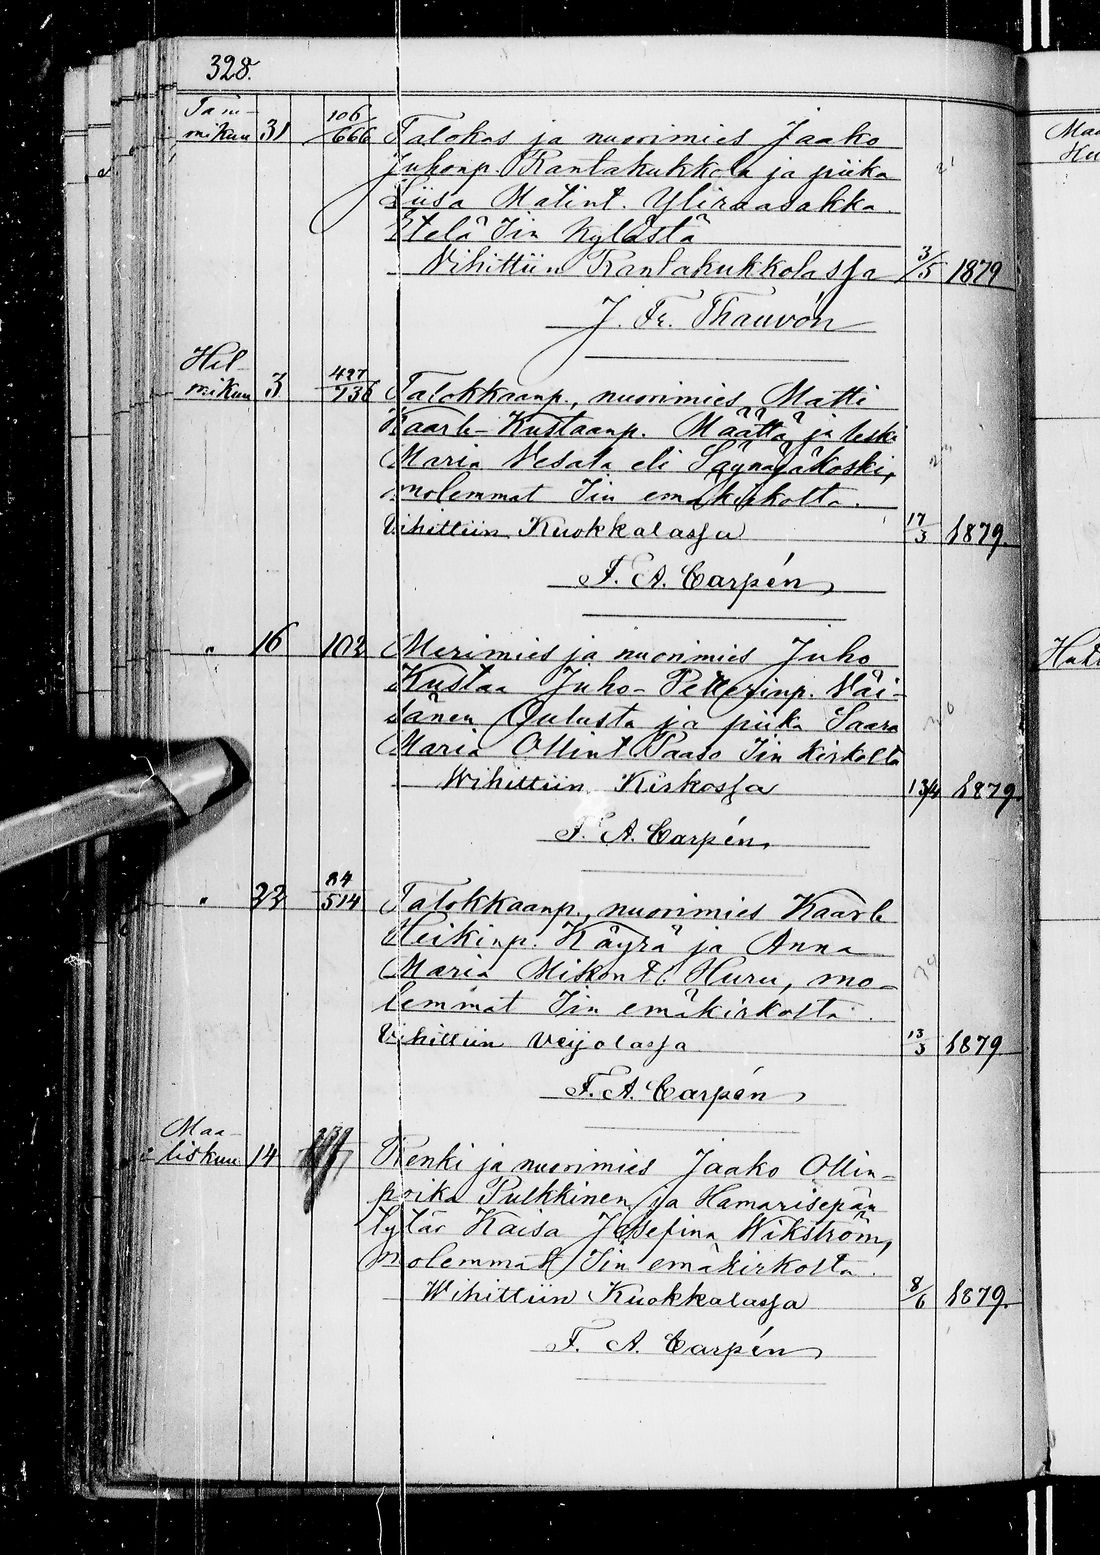 328.
Tam-
mikuu 31 106/666 Talokas ja nuorimies Jaako
Juhonp. Rantakukkola ja piika
Liisa Matint. Yliraasakka
Etelä Iin Kylästä
Vihittiin Rantakukkolassa 3/5 1879
J. Fr. Thauvón
Hel-
mikuu 3 497/736 Talokkaanp., nuorimies Matti
Kaarle-Kustaanp. Määttä ja leski
Maria Vesala eli Säynäjäkoski,
molemmat Iin emäkirkolta.
Vihittiin Kuokkalassa 17/3 1879.
F. A. Carpén
" 16 102 Merimies ja nuorimies Juho
Kustaa Juho-Petterinp. Väi-
sänen Oulusta ja piika Saara
Maria Ollint Paaso Iin kirkolta
Wihittiin Kirkossa 13/4 1879.
F. A. Carpén.
" 22 84/514 Talokkaanp., nuorimies Kaarle
Heikinp. Käyrä ja Anna
Maria Mikont. Huru, mo-
lemmat Iin emäkirkolta.
Vihittiin Veijolassa 13/3 1879
F. A. Carpén
Maa-
liskuu 14 Renki ja nuorimies Jaako Ollin-
poika Pulkkinen ja Hamarisepän
tytär Kaisa Josefina Wikström,
molemmat Iin emäkirkolta.
Wihittiin Kuokkalassa 8/6 1879.
F. A. Carpén